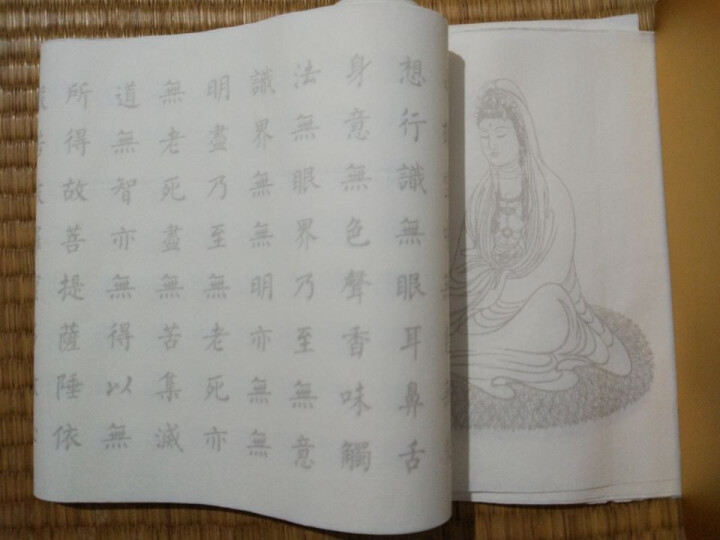 想行識無眼耳鼻舌
身意無色聲香味觸
法無眼界乃至無意
識界無無明亦無無
明盡乃至無老死亦
無老死盡無苦集滅
道無智亦無得以無
所得故菩提薩陲依